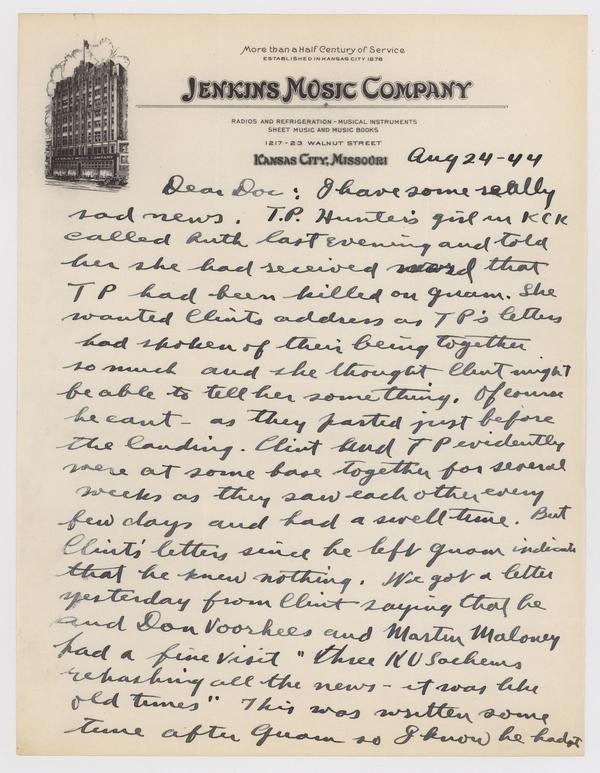 More than a Half Century of Service
ESTABLISHED IN KANSAS CITY 1878
JENKINS MUSIC COMPANY
RADIOS AND REFRIGERATION - MUSICAL INSTRUMENTS
SHEET MUSIC AND MUSIC BOOKS
1217-23 WALNUT STREET
KANSAS CITY, MISSOURI
Aug 24-44
Dear Doc: I have some really
sad news. T.P. Hunter's girl in KCK
called Ruth last evening and told
her she had received word that
TP had been killed on Guam. She
wanted Clints address as TP's letters
had spoken of their being together
so much and she thought Clint might
be able to tell her something. Of course
he cant - as they parted just before
the landing. Clint and TP evidently
were at some base together for several
weeks as they saw each other every
few days and had a swell time. But
Clint's letters since he left Guam indicate
that he knew nothing. We got a letter
yesterday from Clint saying that he
and Don Voorhees and Martin Maloney
had a fine visit "three KU Sachems
rehashing all the news - it was like
old times" This was written some
time after Guam so I know he hadnt